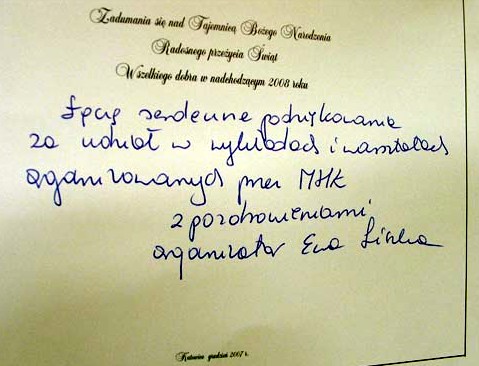 Zadumania się nad Tajemnicą Bożego Narodzenia
Radosnego przeżycia Świąt
Wszelkiego dobra w nadchodzącym 2008 roku
Łączę serdeczne podziękowania
za udział w wykładach i warsztatach
organizowanych przez MHK
z pozdrowieniami
organizator Ewa
Katowice grudzień 2007 r.